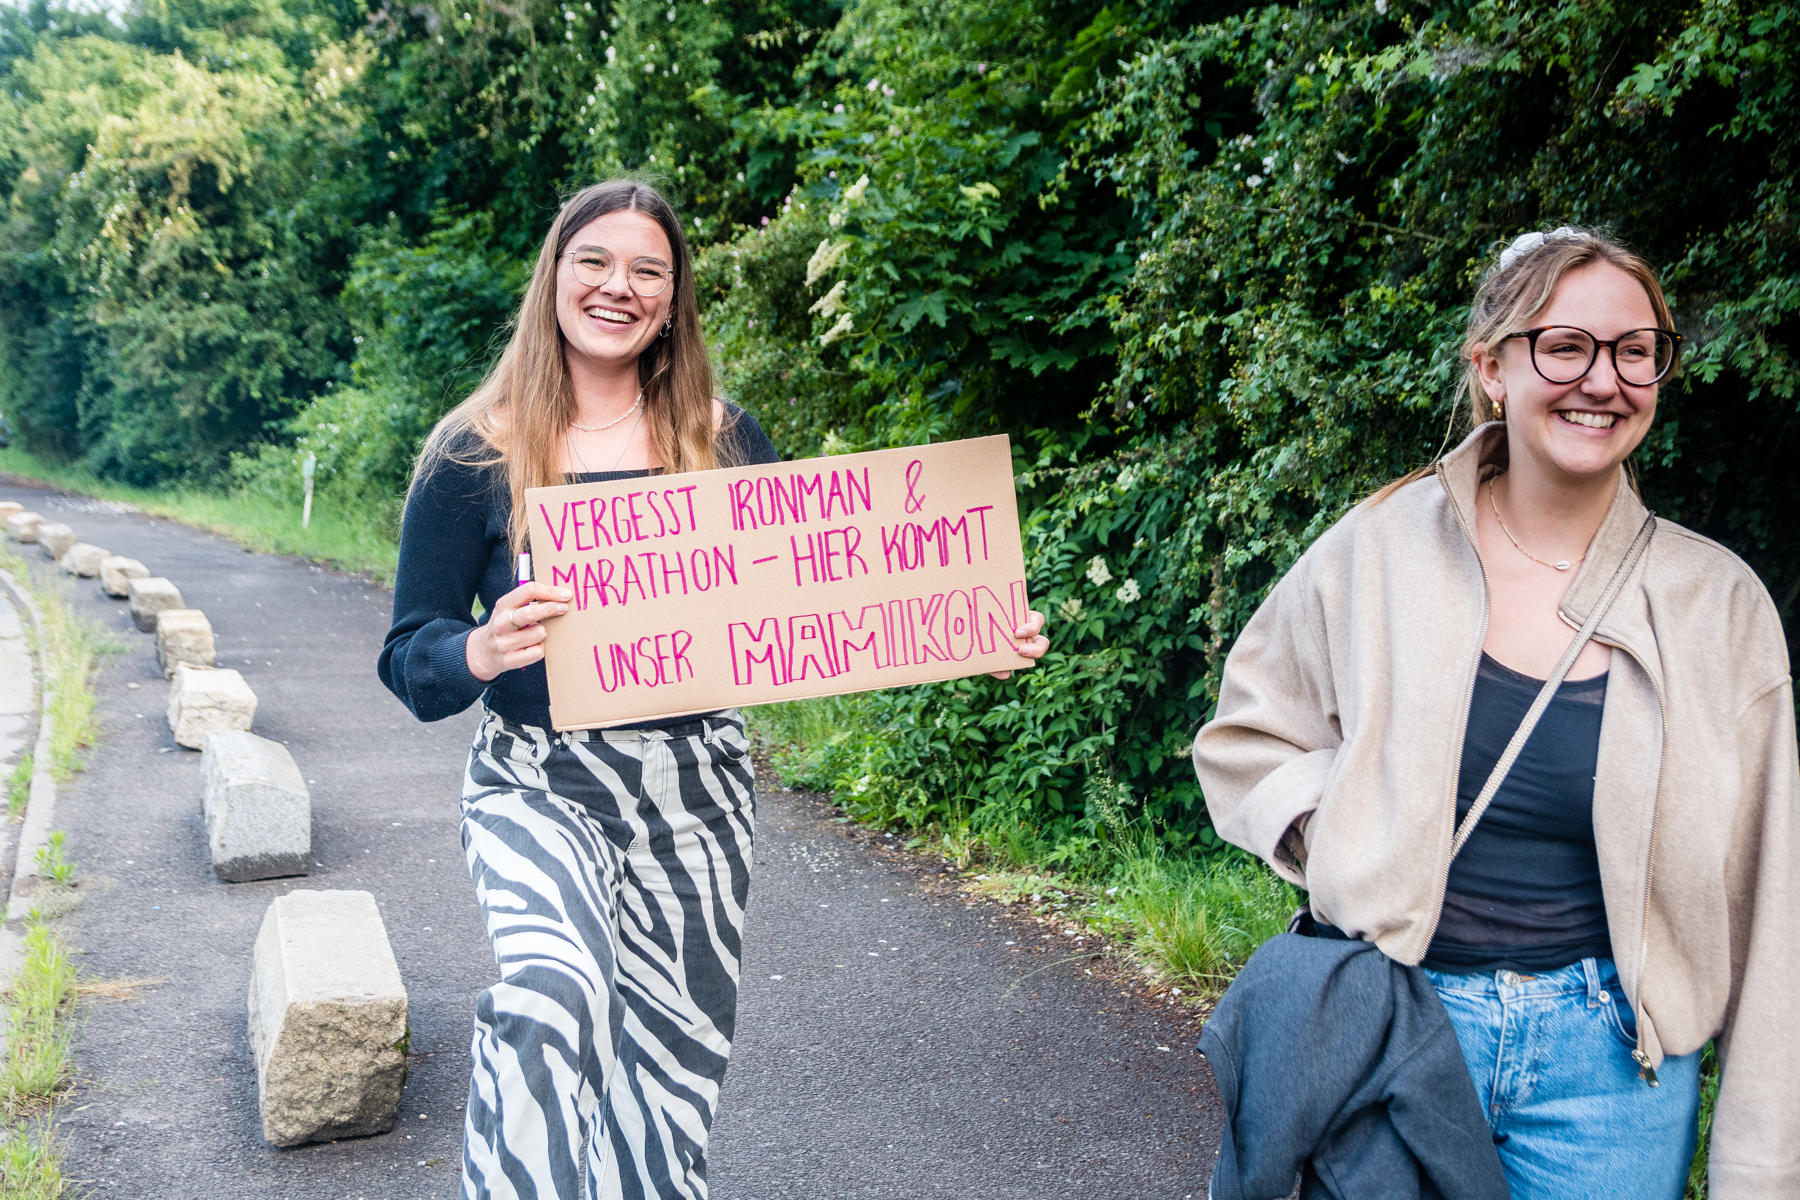 VERGESST IRONMAN &
MARATHON – HIER KOMMT
UNSER MAMIKON